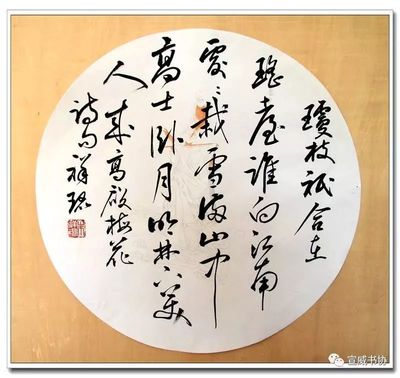 瓊枝祇合在
瑶臺誰向江南
處々栽雪滿山中
高士卧月明林下美
人來高啟梅花
詩句祥
宣威书协